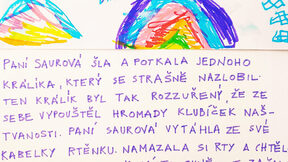 PANÍ SAUROVÁ ŠLA A POTKALA JEDNOHO
KRÁLÍKA, KTERÝ SE STRAŠNĚ NAZLOBIL.
TEN KRÁLÍK BYL TAK ROZZUŘENÝ, ŽE ZE
SEBE VYPOUŠTĚL HROMADY KLUBÍČEK NAŠ-
TVANOSTI. PANÍ SAUROVÁ VYTÁHLA ZE SVÉ
KABELKY RTĚNKU. NAMAZALA SI RTY A CHTĚL